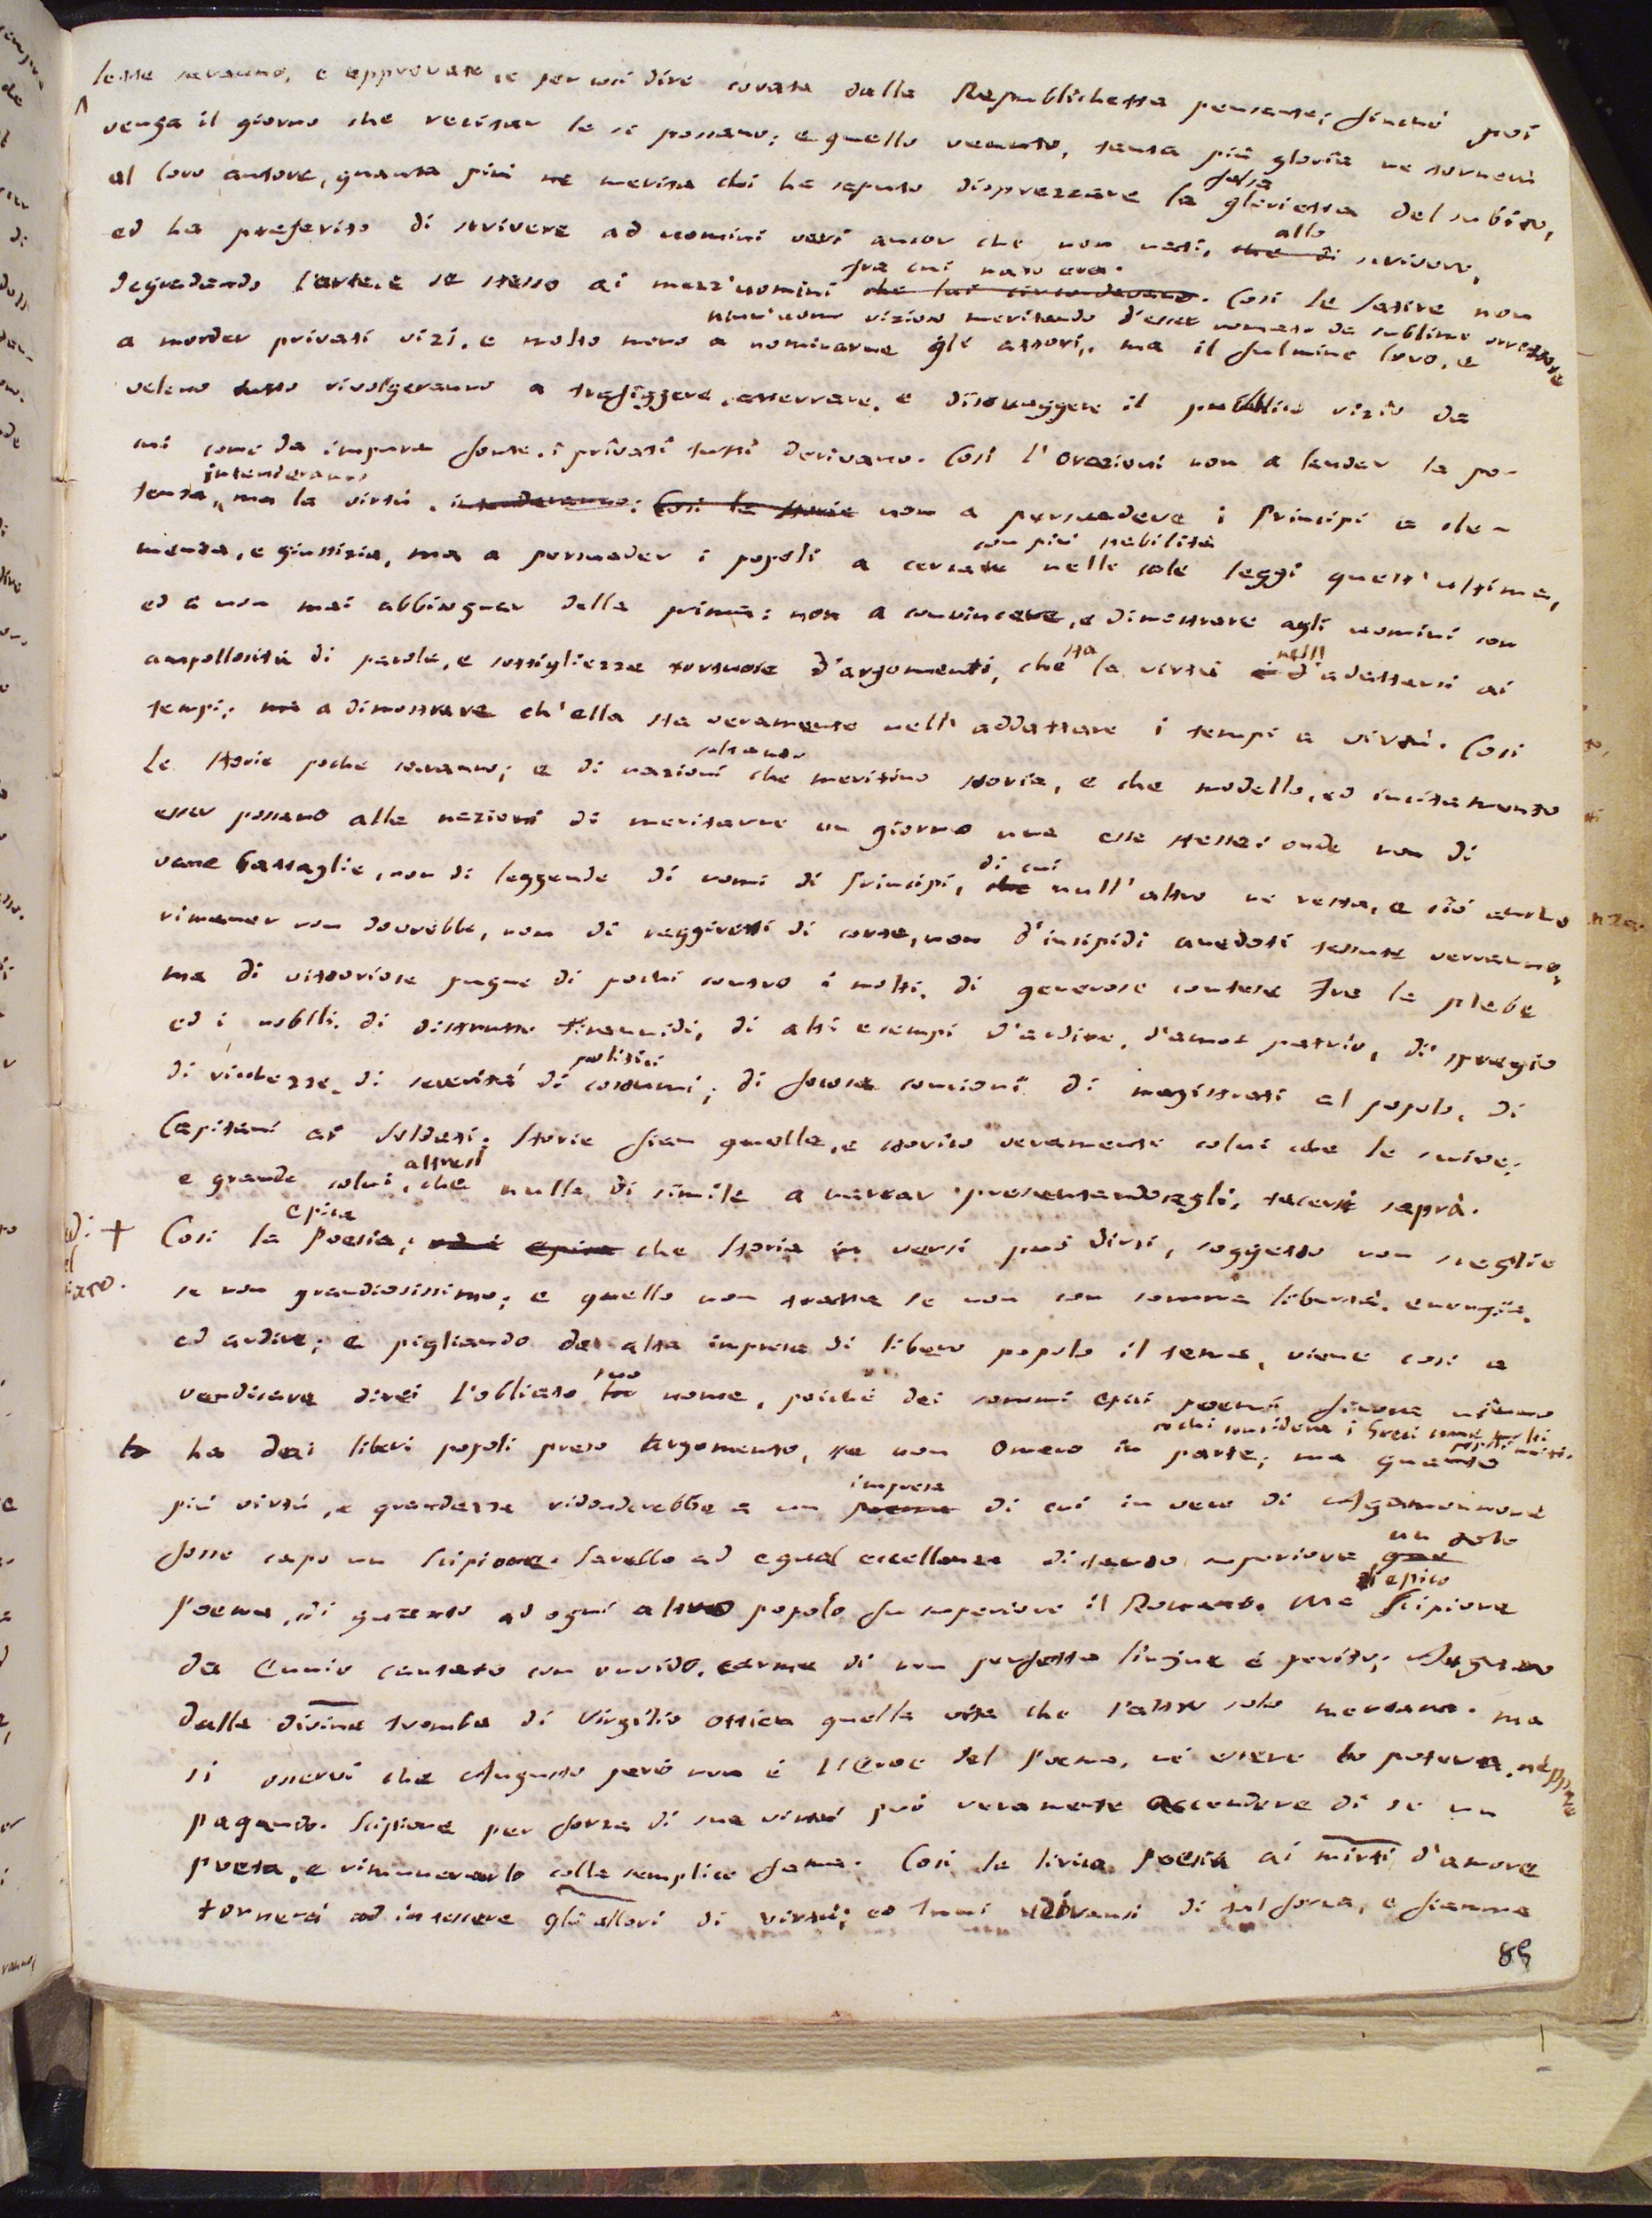 lette saranno, e approvate, e per così dire covate dalla Republichetta pensante; finché poi
venga il giorno che recitar le si possano; e quello venuto, tanta più gloria ne tornerà
al loro autore, quanta più ne merita chi ha saputo disprezzare la falsa glorietta del subito,
ed ha preferito di scrivere ad uomini veri ancor che non nati, che di allo scrivere,
degradando l'arte, e se stesso ai mezz'uomini che lui circondavano. fra cui nato era. Così le satire non
null'uomo vizioso meritando d'esser nomato da sublime scrittore
a morder privati vizi, e molto meno a nominarne gli attori, ma il fulmine loro, e
veleno tutto rivolgeranno a trafiggere, atterrare, e distruggere il pubblico vizio da
cui come da impura fonte, i privati tutti derivano. Così l'orazioni non a laudar la po-
tenza, intenderanno ma la virtù, intenderanno: Così le storie non a persuadere i Principi a cle-
menza, e giustizia, ma a persuader i popoli a cercare con più stabilità nelle sole leggi quest'ultima,
ed a non mai abbisognar della prima: non a convincere, e dimostrare agli uomini con
ampollosità di parole, e sottigliezze tortuose d'argomenti, che sta la virtù è nell' d'adattarsi ai
tempi; ma a dimostrare ch'ella sta veramente nell'addattare i tempi a virtù. Così
le storie poche saranno; e di nazioni soltanto che meritino storia, e che modello, ed incitamento
esser possano alle nazioni di meritarne un giorno una esse stesse; onde non di
vane battaglie, non di leggende di nomi di Principi, che di cui null'altro ne resta, e ciò anche
rimaner non dovrebbe, non di raggiretti di corte, non d'insipidi anedoti tessute verranno,
ma di vittoriose pugne di pochi contro i molti, di generose contese fra la plebe
ed i nobili, di distrutte tirannidi, di alti esempi d'ardire, d'amor patrio, di spregio
di ricchezze, di severità di politici costumi; di focose concioni di magistrati al popolo, di
Capitani ai soldati: storie fien quelle, e storico veramente colui che le scrive;
e grande colui, altresì che nulla di simile a narrar presentandosegli, tacersi saprà.
Così la epica Poesia; epica che storia in versi può dirsi, soggetto non sceglie
se non grandiosissimo; e quello non tratta se non con somma libertà, energia,
ed ardire; e pigliando da alta impresa di libero popolo il tema, viene così a
vendicare direi l'obliato suo nome, poiché dei sommi epici poemi finora niuno
ha dai liberi popoli preso largomento, se non Omero in parte, a chi considera i Greci come molti popoli uniti. ma quanto
più virtù, e grandezza ridonderebbe a un poema impresa di cui in vece di Agamennone
fosse capo un Scipione. Sarebbe ad egual eccellenza di tanto superiore un solo
Poema, di quanto ad ogni altro popolo fu superiore il Romano. Ma l'epico Scipione
da Ennio cantato con ruvido carme di non perfetta lingua è perito; Augusto
dalla divina tromba di Virgilio ottien quella vita che l'altro solo mertava. ma
si osservi che Augusto però non è l'Eroe del Poema, né essere lo poteva, neppure
pagando. Scipione per forza di sua virtù può veramente accendere di se un
poeta, e rimunerarlo colla semplice fama. Così la lirica Poesia ai mirti d'amore
tornerà ad intessere gli allori di virtù; ed inni udiransi di tal forza, e fiamma
85